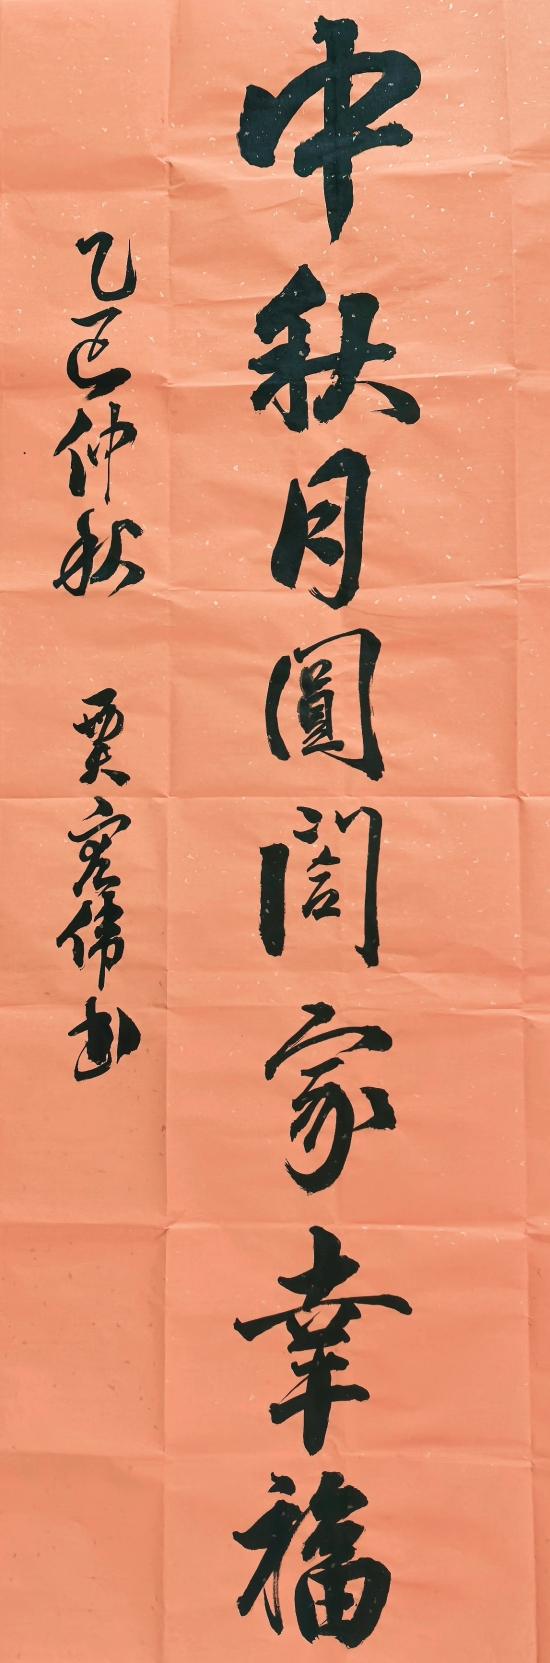 中秋月圓閤家幸福
乙巳仲秋 贾宏伟书